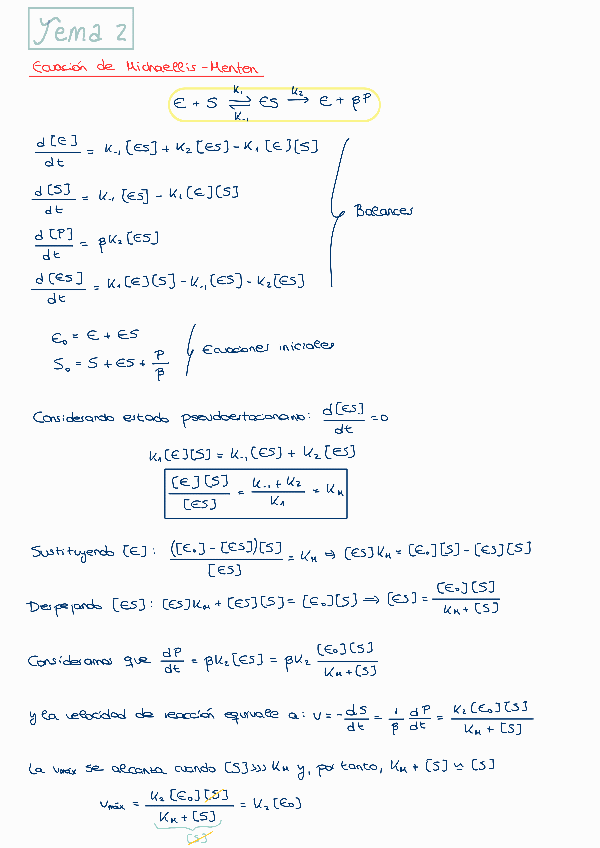 Tema 2
Ecuación de Michaellis-Menten
E + S ⇌ ES → E + βP
K₁ K₂
K₋₁
d[E]/dt = K₋₁[ES] + K₂[ES] - K₁[E][S]
d[S]/dt = K₋₁[ES] - K₁[E][S]
Balances
d[P]/dt = βK₂[ES]
d[ES]/dt = K₁[E][S] - K₋₁[ES] - K₂[ES]
E₀ = E + ES
S₀ = S + ES + P/β
Ecuaciones iniciales
Considerando estado pseudoestacionario: d[ES]/dt = 0
K₁[E][S] = K₋₁[ES] + K₂[ES]
[E][S]/[ES] = (K₋₁ + K₂)/K₁ = Kₘ
Sustituyendo [E]: ([E₀] - [ES])[S]/[ES] = Kₘ ⇒ [ES]Kₘ = [E₀][S] - [ES][S]
Despejando [ES]: [ES]Kₘ + [ES][S] = [E₀][S] ⇒ [ES] = [E₀][S]/(Kₘ + [S])
Consideramos que dP/dt = βK₂[ES] = βK₂ [E₀][S]/(Kₘ + [S])
y la velocidad de reacción equivale a: v = -dS/dt = 1/β dP/dt = K₂[E₀][S]/(Kₘ + [S])
La vmáx se alcanza cuando [S]>>> Kₘ y, por tanto, Kₘ + [S] ≃ [S]
vmáx = K₂[E₀][S]/(Kₘ + [S]) = K₂[E₀]
[S]